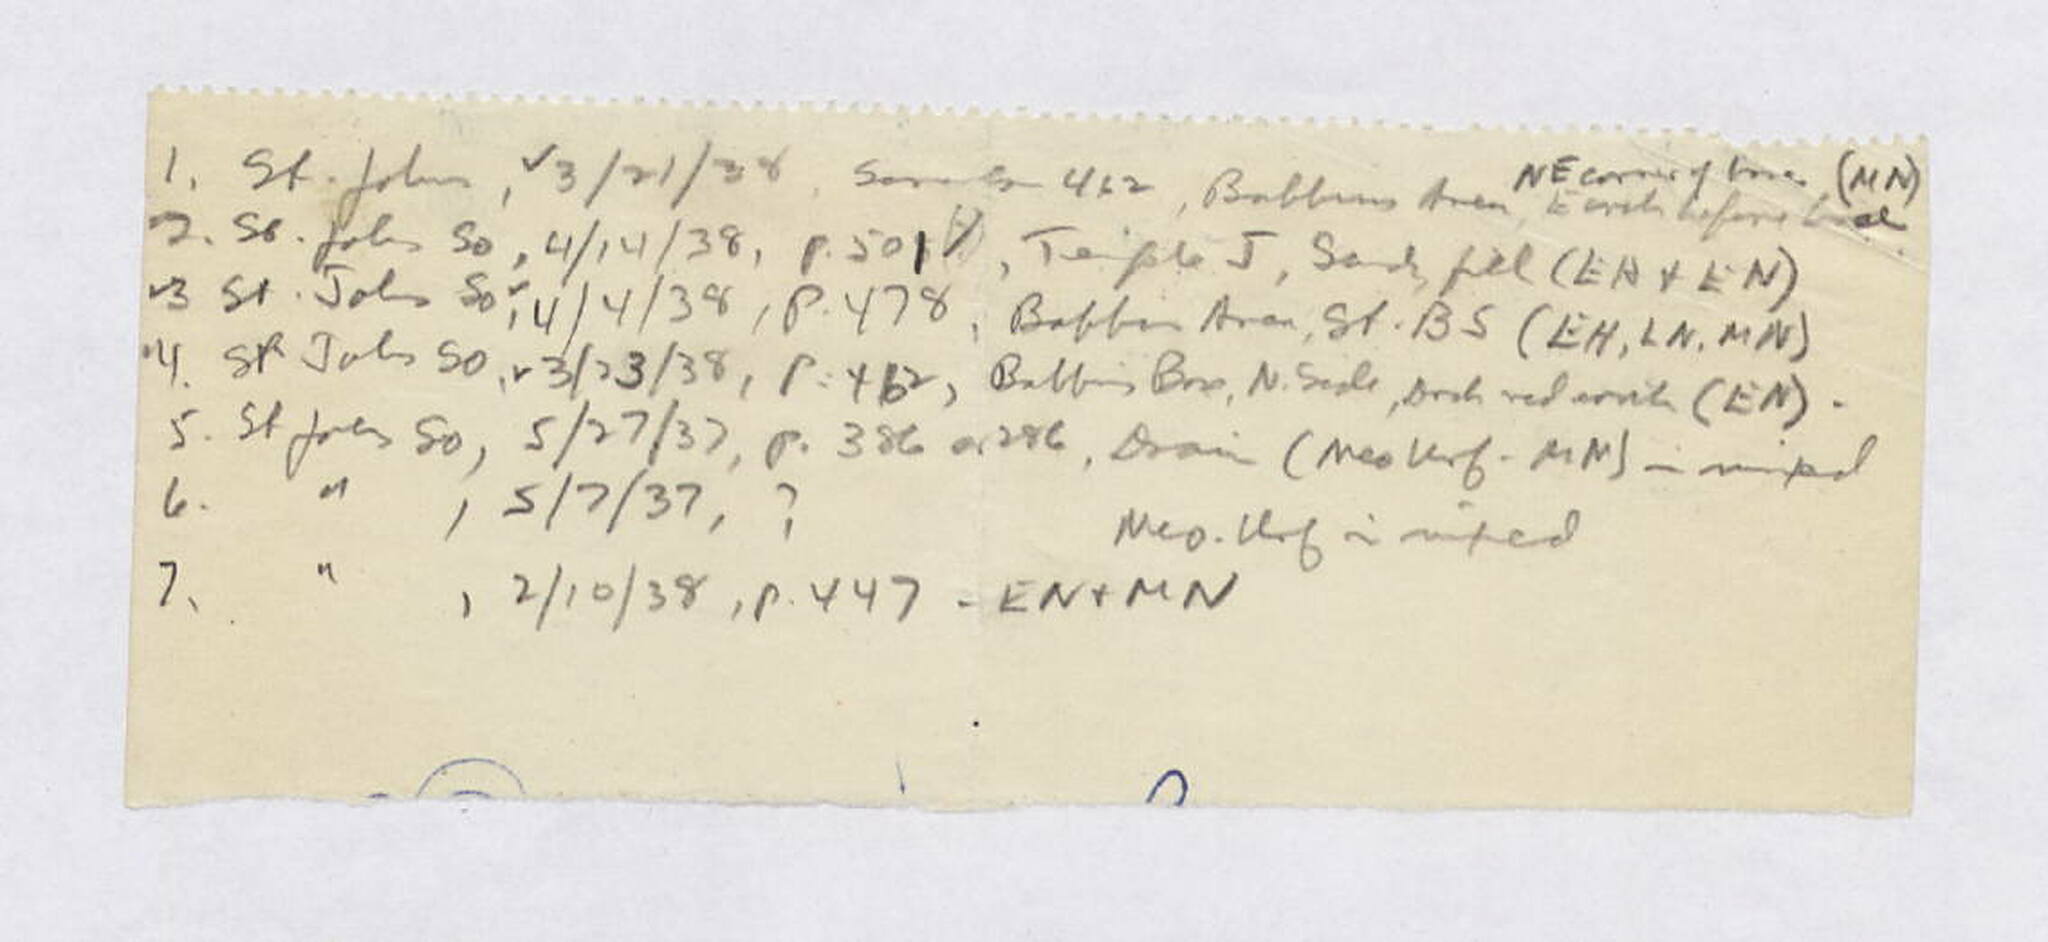 1. St. Johns, ✓3/21/38, Same as 462, Babbius Area, NE corner of base (MN)
Earth before base
✓2. St. Johns So, 4/14/38, p. 501, Temple J, Sandy fill (EH + EN)
✓3 St. Johns So, ✓4/4/38, p. 478, Babbius Area, St. B5 (EH, LN, MN)
✓4. St Johns So, ✓3/23/38, p. 462, Babbius Base, N. Side, Dark red earth (EN).
5. St Johns So, 5/27/37, p. 386 or 286, Drain (Neo Urf - MN) - mixed
6. " , 5/7/37, ? Neo. Urf in mixed
7. " , 2/10/38, p. 447 - EN + MN